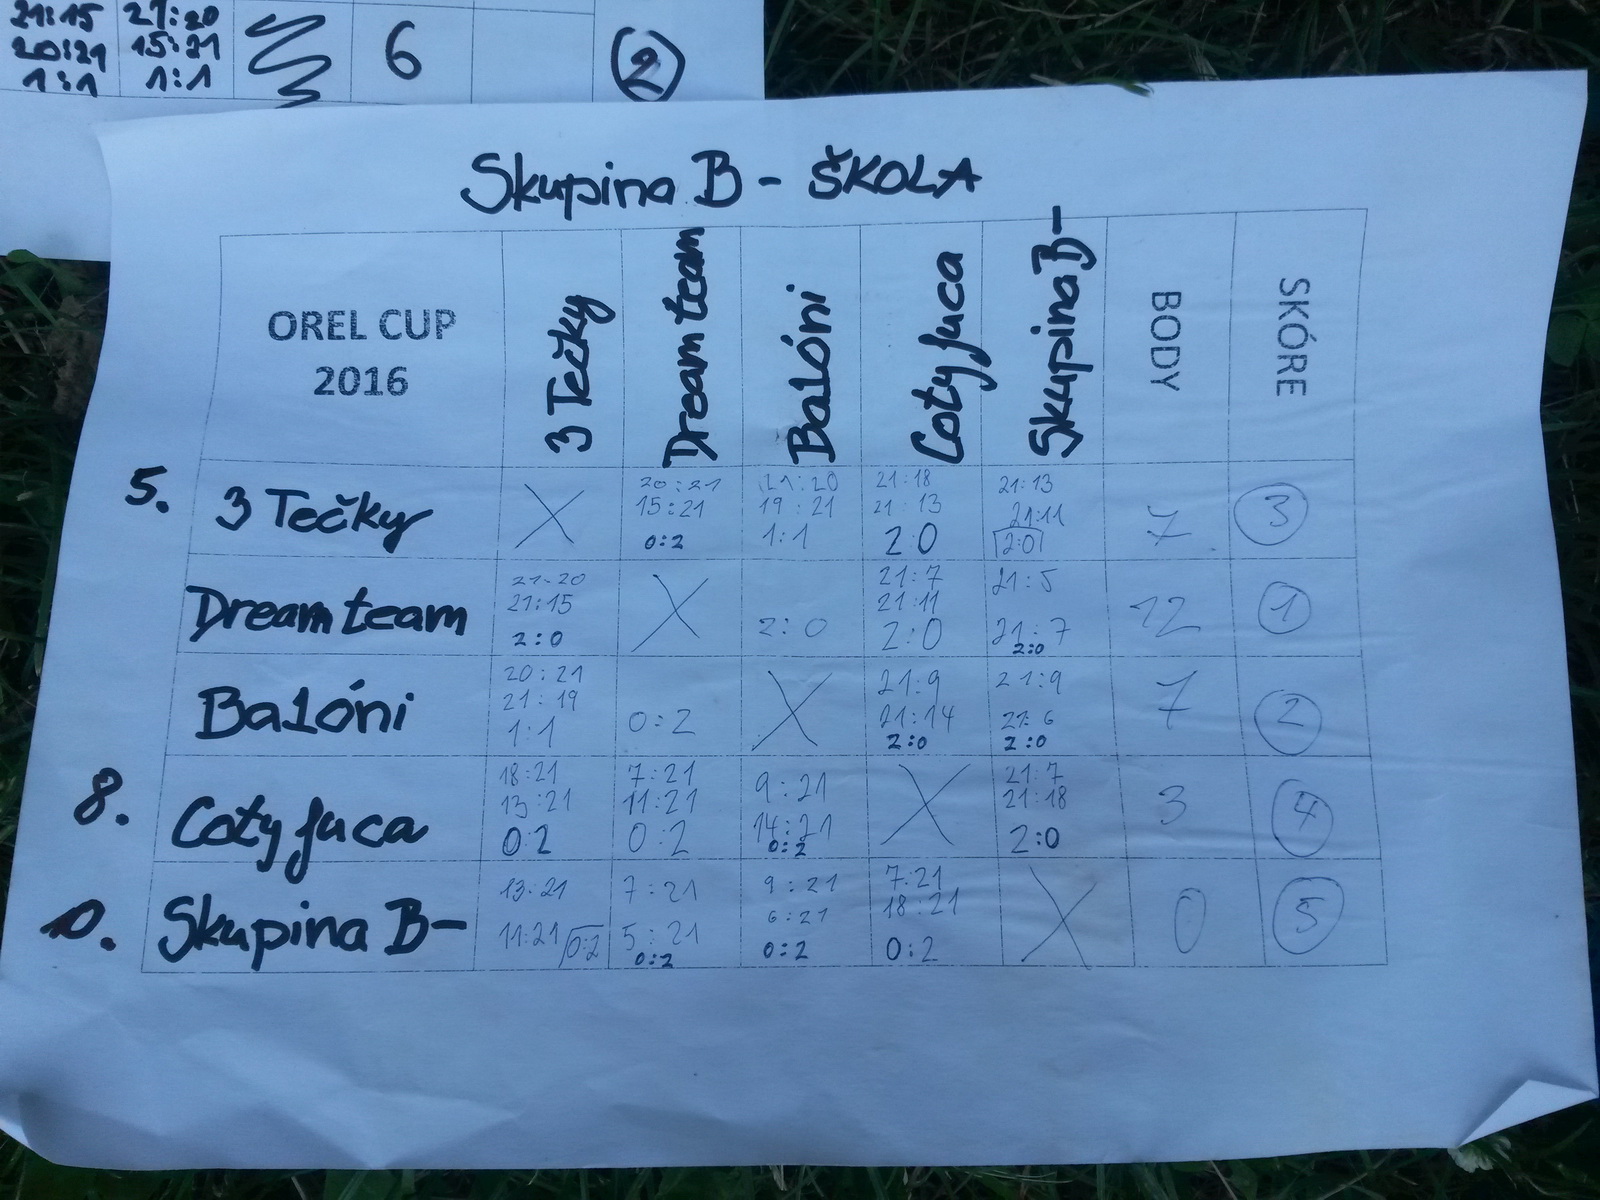 21:15 21:20
20:21 15:21 6 2
1:1 1:1
Skupina B - ŠKOLA
OREL CUP
2016
3 Tečky
Dream team
Balóni
Coty fuca
Skupina B-
BODY
SKÓRE
5. 3 Tečky
20:21 21:20 21:18 21:13
15:21 19:21 21:13 21:11
0:2 1:1 2:0 2:0
7 3
Dream team
21:20 21:7 21:5
21:15 21:11 21:7
2:0 2:0 2:0 2:0
12 1
Balóni
20:21 21:9 21:9
21:19 21:14 21:6
1:1 0:2 2:0 2:0
7 2
8. Coty fuca
18:21 7:21 9:21 21:7
13:21 11:21 14:21 21:18
0:2 0:2 0:2 2:0
3 4
10. Skupina B-
13:21 7:21 9:21 7:21
11:21 5:21 6:21 18:21
0:2 0:2 0:2 0:2
0 5